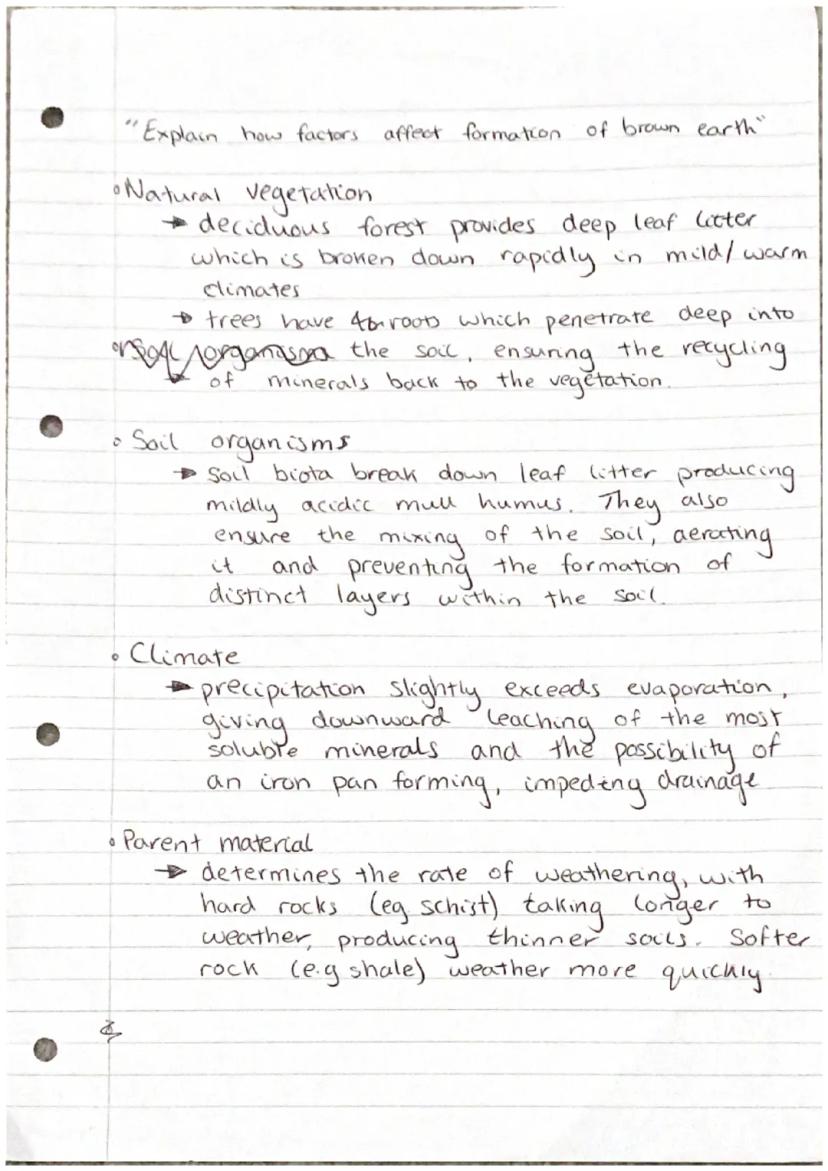 "Explain how factors affect formation of brown earth"
Natural vegetation
→ deciduous forest provides deep leaf litter
which is broken down rapidly in mild/warm
climates
→ trees have roots which penetrate deep into
the soil, ensuring the recycling
of minerals back to the vegetation.
Soil organisms
→ Soil biota break down leaf litter producing
mildly acidic mull humus. They also
ensure the mixing of the soil, aerating
it and preventing the formation of
distinct layers within the soil.
Climate
→ precipitation slightly exceeds evaporation,
giving downward leaching of the most
soluble minerals and the possibility of
an iron pan forming, impeding drainage
Parent material
→ determines the rate of weathering, with
hard rocks (eg schist) taking longer to
weather, producing thinner soils. Softer
rock (e.g shale) weather more quickly.